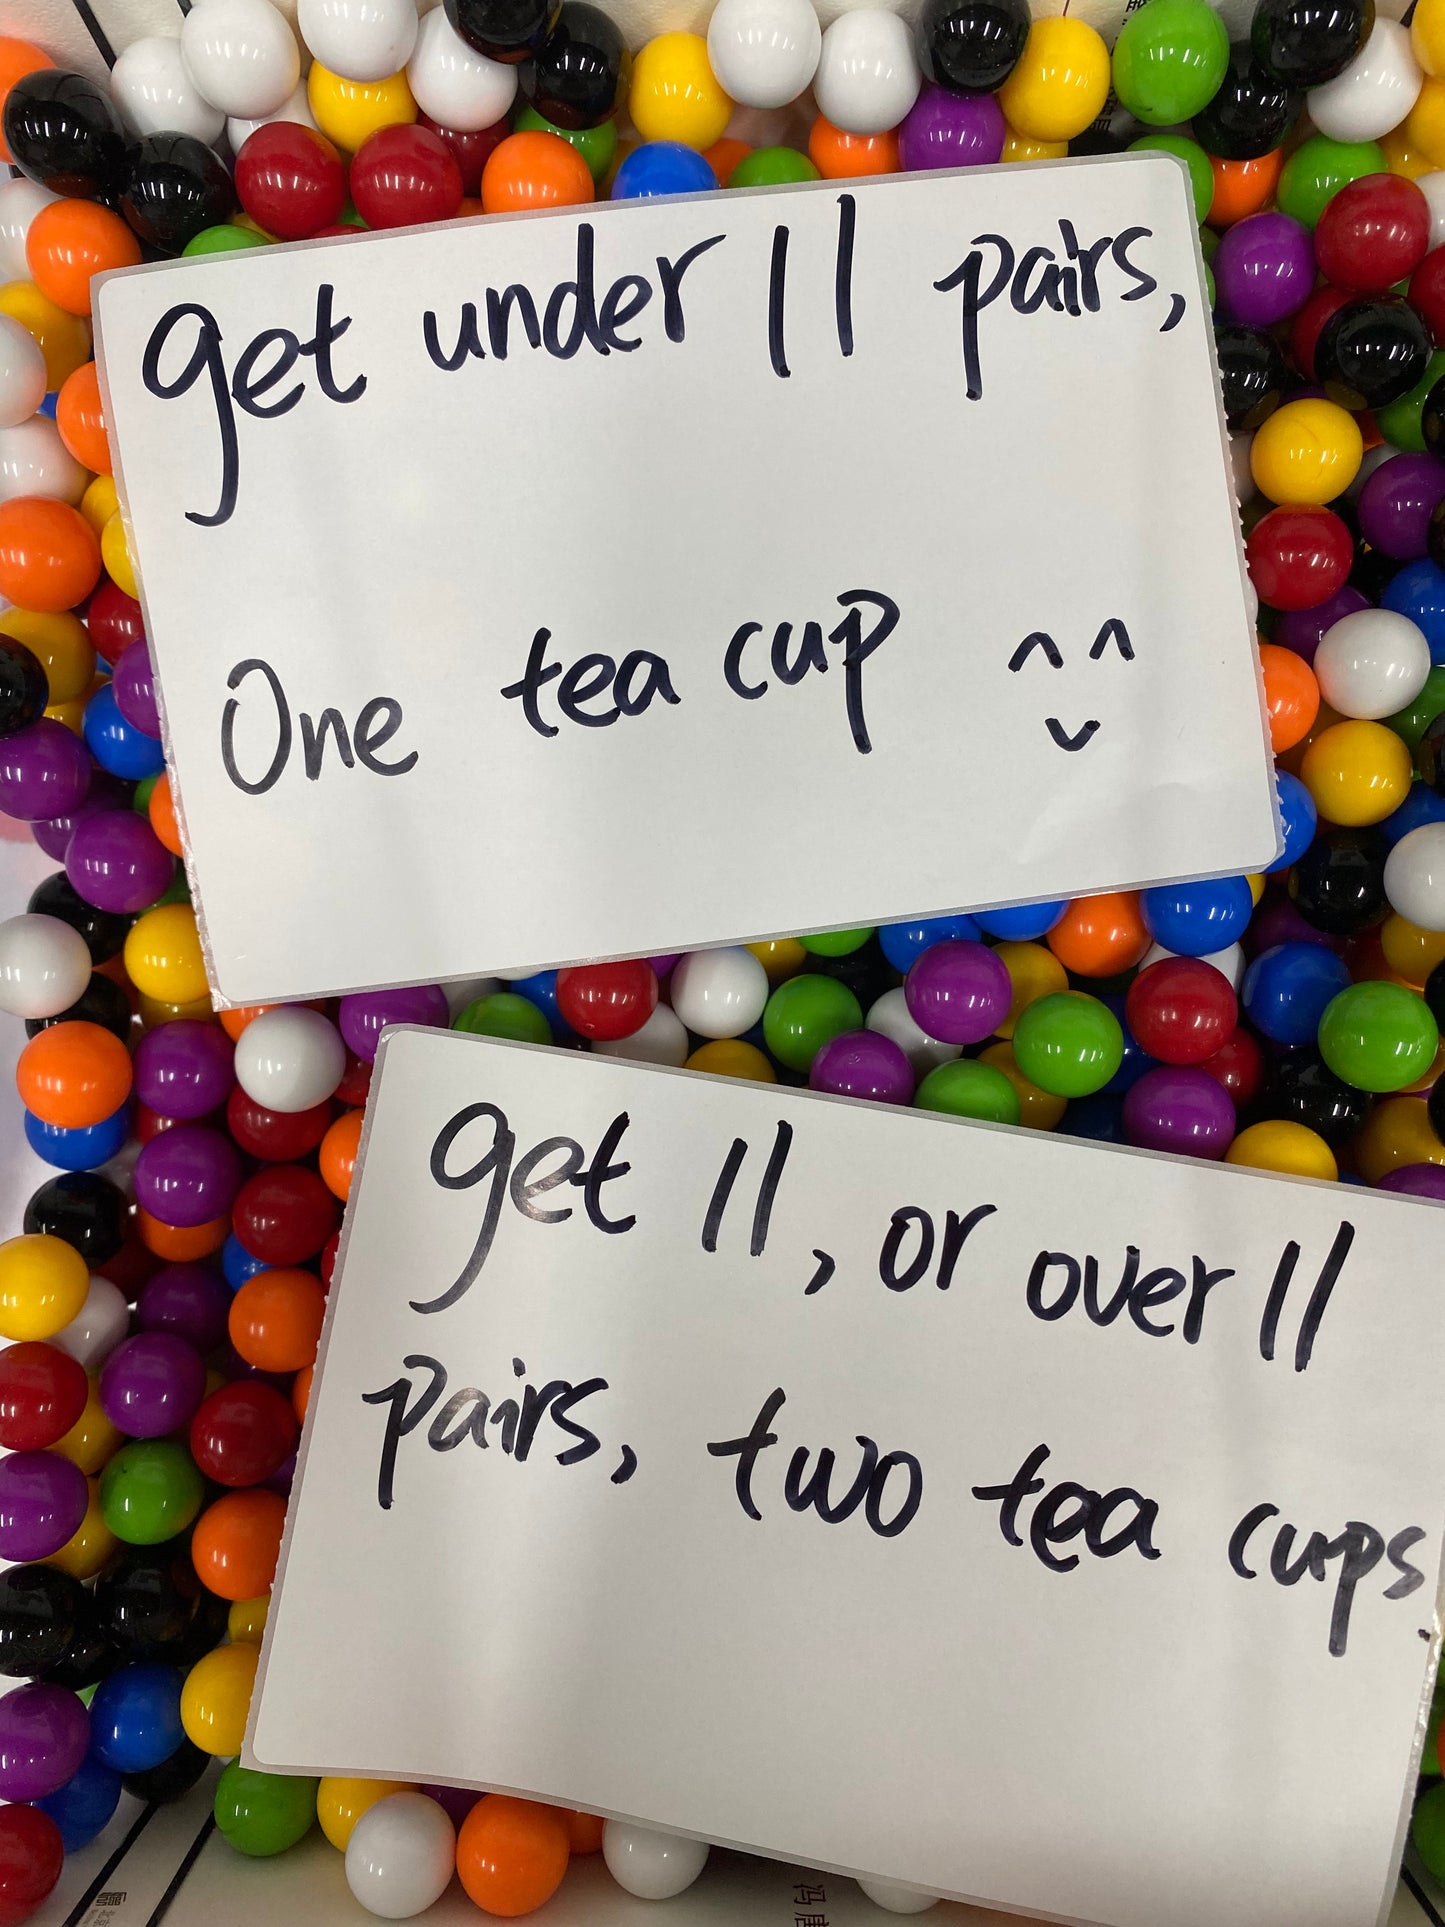 get under 11 pairs,
One tea cup ^ ^
get 11, or over 11
pairs, two tea cups.
冯唐